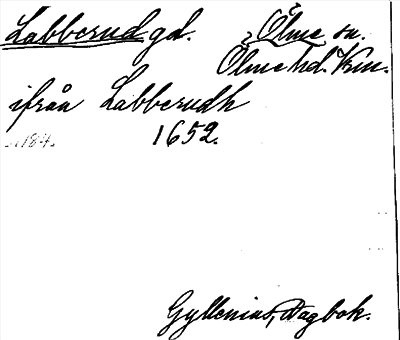 Labberud gd. Ölme sn.
Ölme hd. Vrm.
ifrån Labberudh
1652.
Gyllenius, Dagbok.